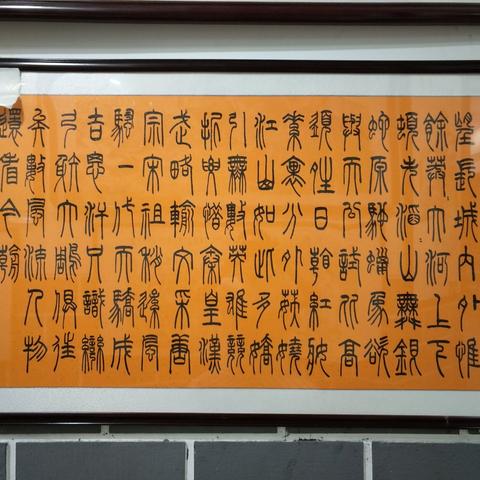 望長城內外惟
餘莽大河上下
頓失滔山舞銀
蛇原馳蠟象欲
與天公試比高
須晴日看紅裝
素裹分外妖嬈
江山如此多嬌
引無數英雄競
折腰惜秦皇漢
武略輸文采唐
宗宋祖稍遜風
騷一代天驕成
吉思汗只識彎
弓射大鵰俱往
矣數風流人物
還看今朝